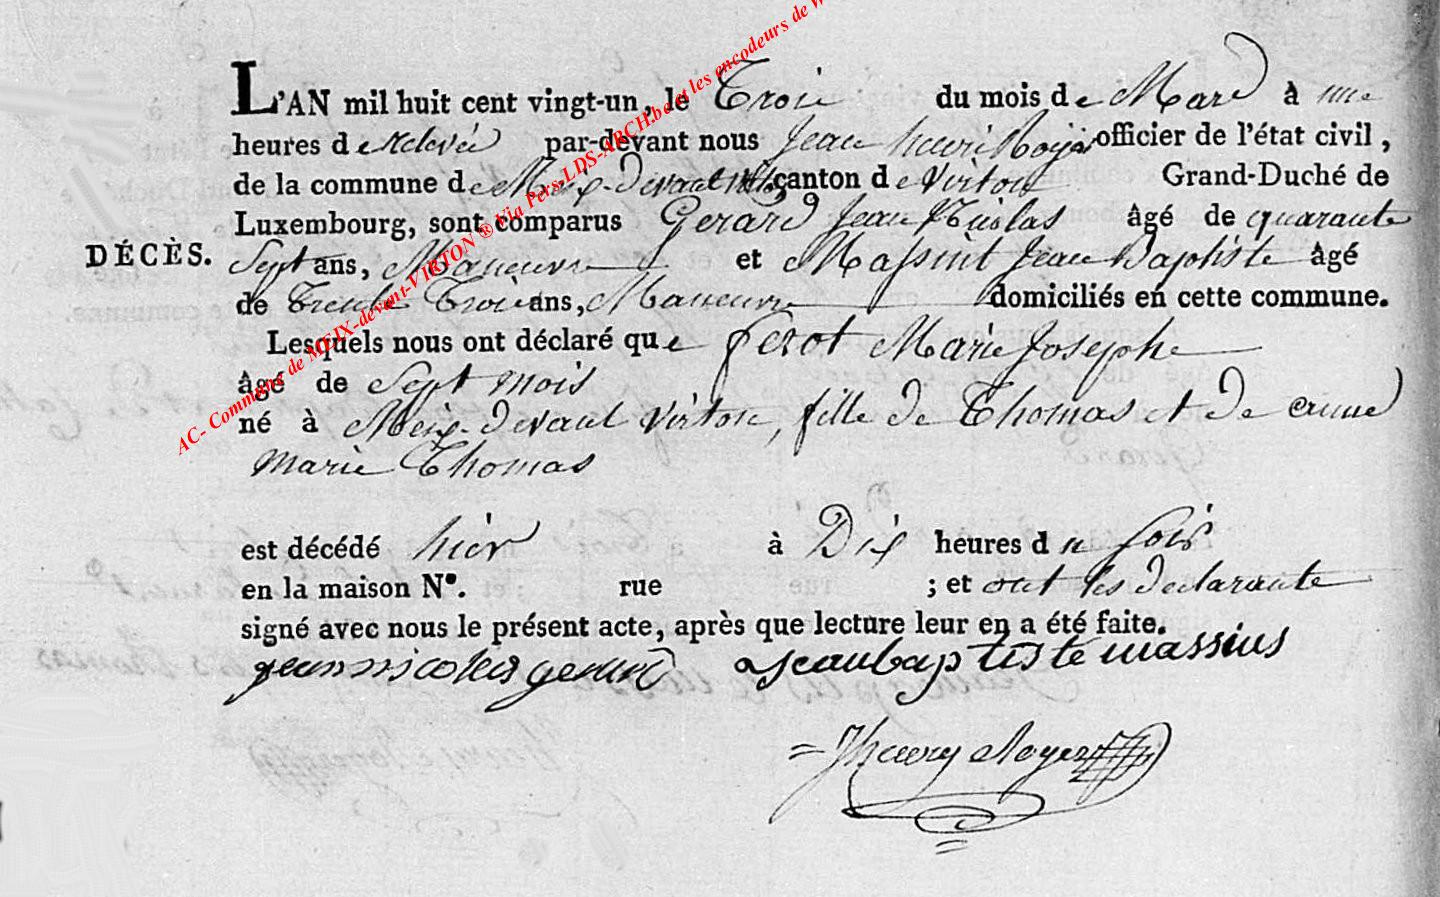 L'AN mil huit cent vingt-un, le Trois du mois de Mars à une
heures de Relevée par-devant nous Jean henri Royer officier de l'état civil,
de la commune de Meix-devant virton, canton de Virton Grand-Duché de
Luxembourg, sont comparus Gerard Jean Nicolas âgé de quarante
DÉCÈS.
Sept ans, Maneuvre et Massint Jean Baptiste âgé
de Trente Trois ans, Maneuvre domiciliés en cette commune.
Lesquels nous ont déclaré que ferot Marie Josephe
âgé de Sept mois
né à Meix-devant virton, fille de Thomas et de anne
marie Thomas
est décédé hier à Dix heures du soir
en la maison N°. rue ; et ont les declarants
signé avec nous le présent acte, après que lecture leur en a été faite.
jean nicolas gerard Jean baptiste massius
JhenryRoyer
AC- Commune de MEIX-devant-VIRTON ® Via Pers-LDS-ARCH.be et les encodeurs de